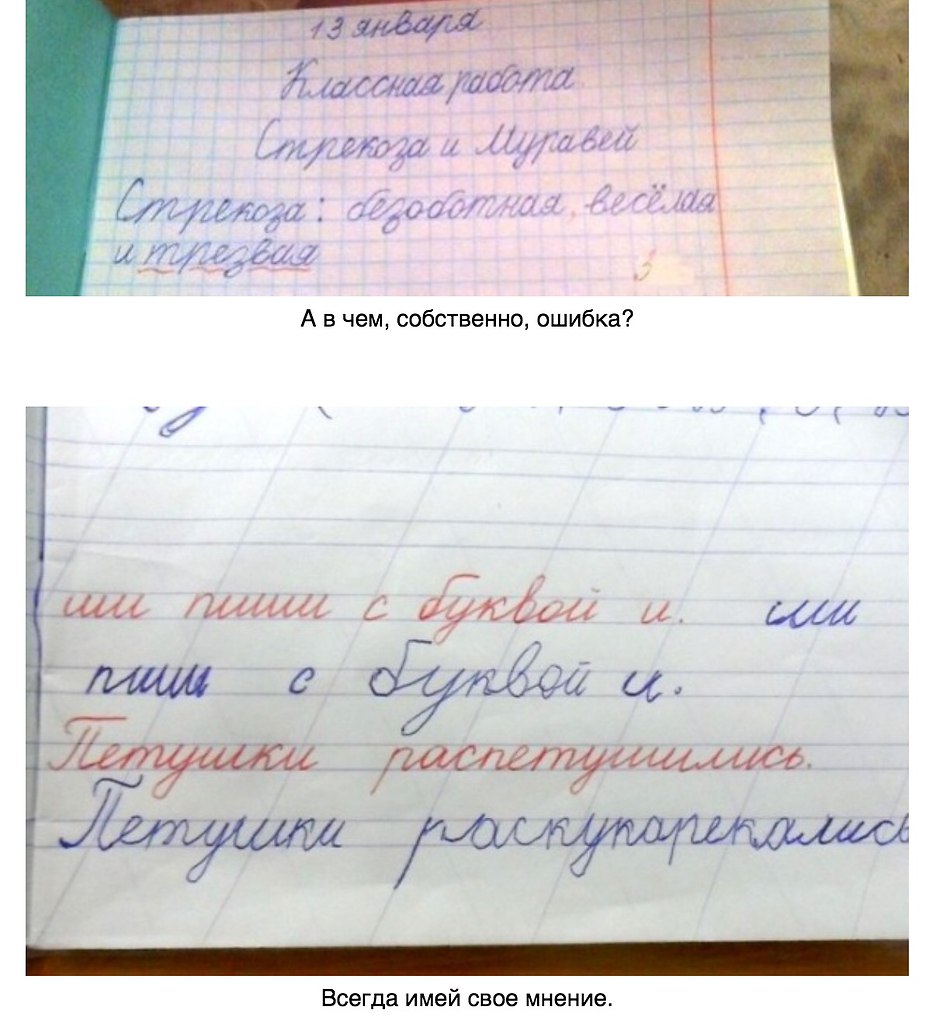 13 января
Классная работа
Стрекоза и Муравей
Стрекоза: безоботная, весёлая
и трезвая
3
А в чем, собственно, ошибка?
ши пиши с буквой и. ши
пиши с буквой и.
Петушки распетушились.
Петушки раскукарекались
Всегда имей свое мнение.